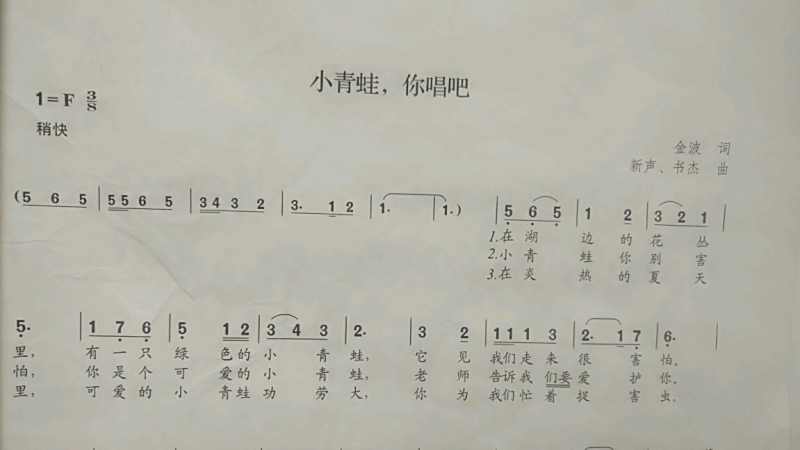 小青蛙，你唱吧
1=F 3/8
稍快
金波 词
新声、书杰 曲
(5 6 5 | 5 5 6 5 | 3 4 3 2 | 3. 1 2 | 1. | 1. ) | 5 6 5 | 1 2 | 3 2 1 |
1.在 湖 边 的 花 丛
2.小 青 蛙 你 别 害
3.在 炎 热 的 夏 天
5. | 1 7 6 | 5 1 2 | 3 4 3 | 2. | 3 2 | 1 1 1 3 | 2. 1 7 | 6. |
里， 有 一 只 绿 色的 小 青 蛙， 它 见 我们 走 来 很 害 怕，
怕， 你 是 个 可 爱的 小 青 蛙， 老 师 告诉 我 们要 爱 护 你，
里， 可 爱 的 小 青蛙 功 劳 大， 你 为 我们 忙 着 捉 害 虫，